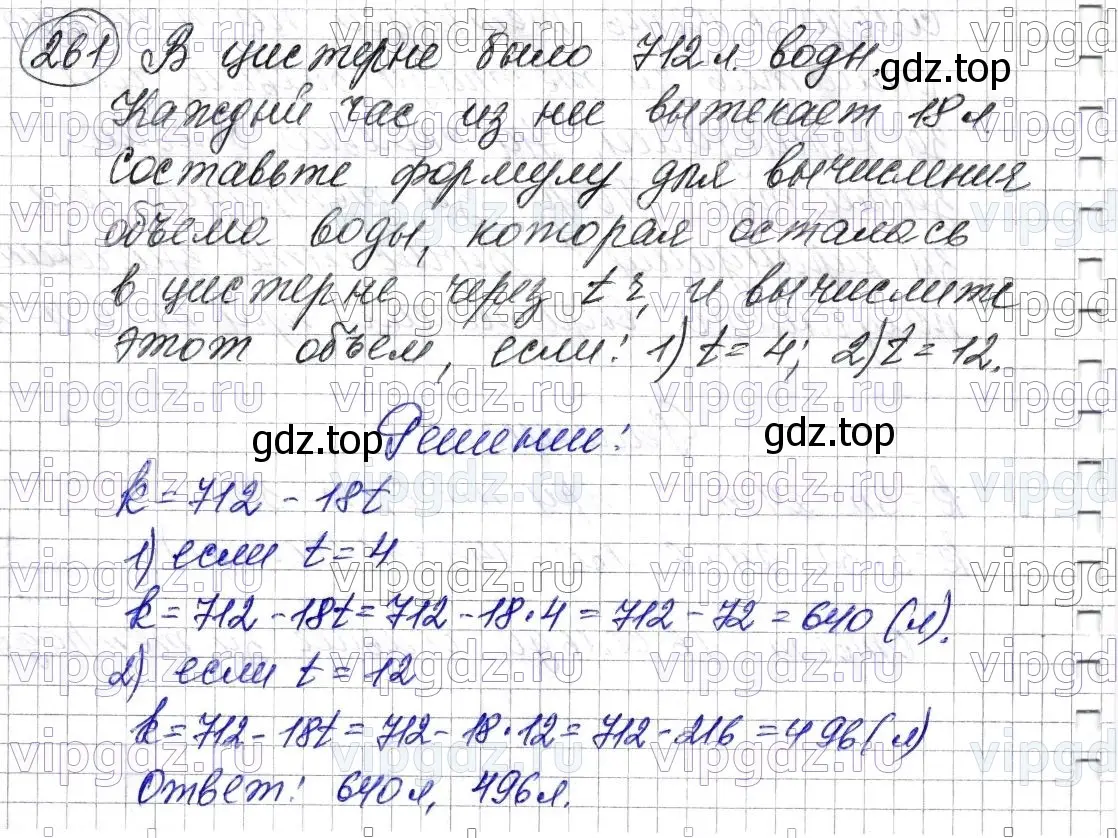 261 В цистерне было 712 л. воды.
Каждый час из нее вытекает 18 л.
Составьте формулу для вычисления
объема воды, которая осталась
в цистерне через t ч, и вычислите
этот объем, если: 1) t = 4; 2) t = 12.
Решение:
k = 712 - 18t
1) если t = 4
k = 712 - 18t = 712 - 18·4 = 712 - 72 = 640 (л).
2) если t = 12
k = 712 - 18t = 712 - 18·12 = 712 - 216 = 496 (л)
Ответ: 640 л, 496 л.
gdz.top
gdz.top
gdz.top
vipgdz.ru